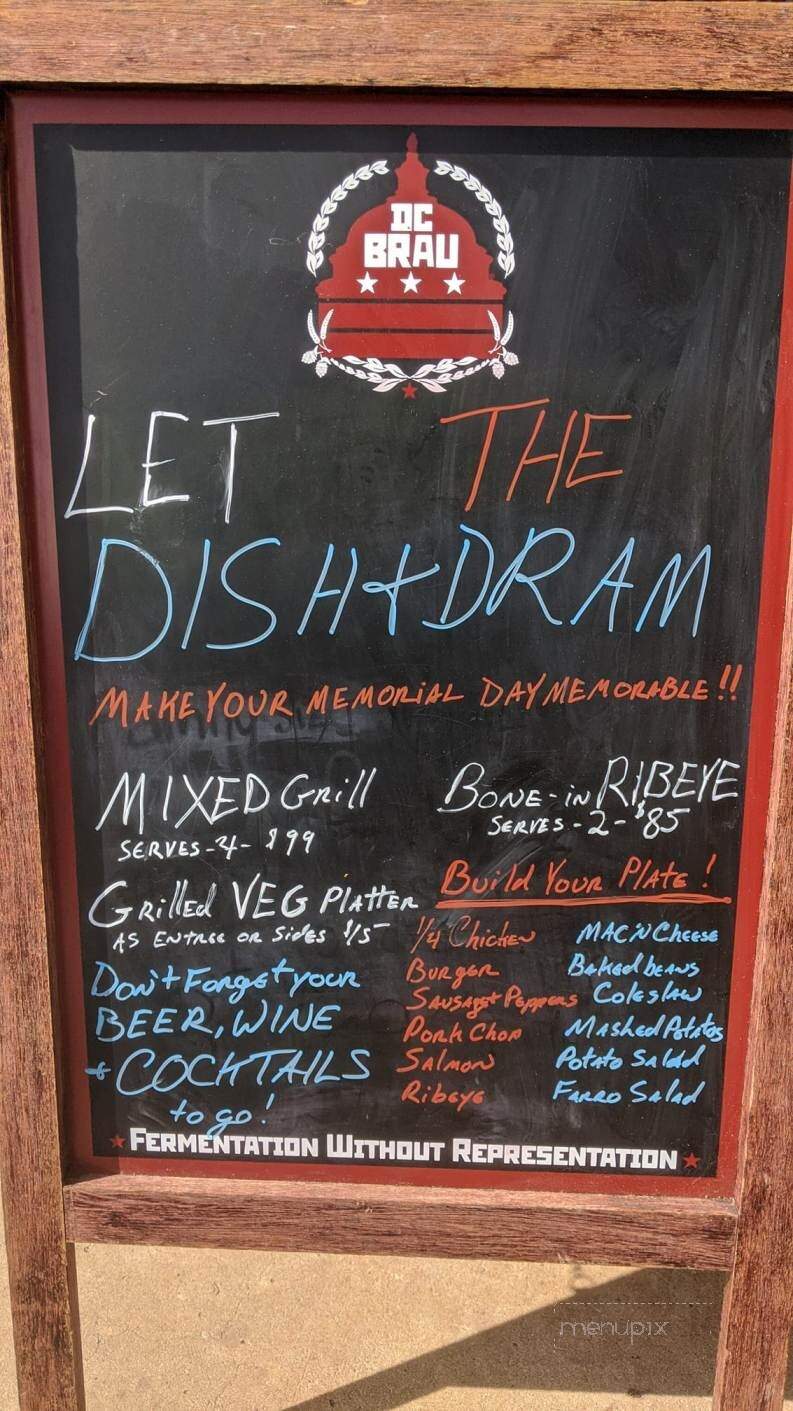 DC
BRAU
LET THE
DISH & DRAM
MAKE YOUR MEMORIAL DAY MEMORABLE!!
MIXED Grill
SERVES-4- $99
BONE-IN RIBEYE
SERVES-2-$85
Grilled VEG Platter
AS ENTREE OR SIDES $15-
Don't Forget your
BEER, WINE
+ COCKTAILS
to go!
Build Your Plate!
1/4 Chicken
Burger
Sausage + Peppers
Pork Chop
Salmon
Ribeye
MAC'N CHEESE
Baked beans
Coleslaw
Mashed Potatos
Potato Salad
Farro Salad
FERMENTATION WITHOUT REPRESENTATION
menupix